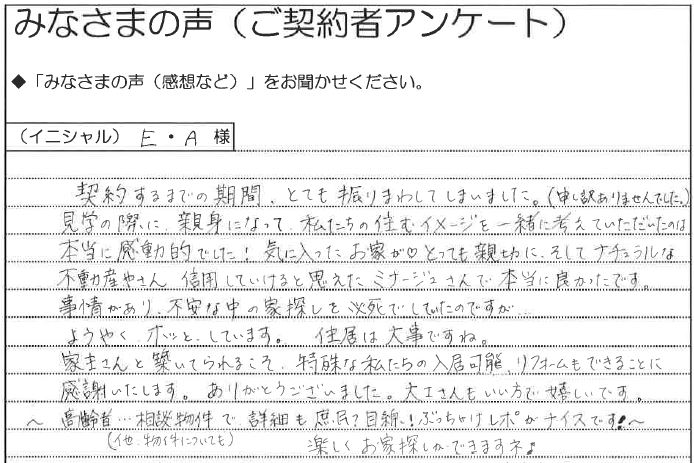 みなさまの声(ご契約者アンケート)
◆「みなさまの声(感想など)」をお聞かせください。
(イニシャル) E・A 様
契約するまでの期間、とても振りまわしてしまいました。(申し訳ありませんでした。)
見学の際に、親身になって、私たちの住むイメージを一緒に考えていただいたのは
本当に感動的でした!気に入ったお家が♡とっても親切に、そしてナチュラルな
不動産やさん 信用していけると思えたミナージュさんで本当に良かったです。
事情があり、不安な中の家探しを必死でしていたのですが…
ようやく、ホッと、しています。 住居は大事ですね。
家主さんと築いてられるこそ、特殊な私たちの入居可能、リフォームもできることに
感謝いたします。 ありがとうございました。大工さんもいい方で嬉しいです。
~ 高齢者…相談物件で 詳細も 庶民?目線!ぶっちゃけレポがナイスです!~
(他、物件についても)
楽しくお家探しができますネ♪